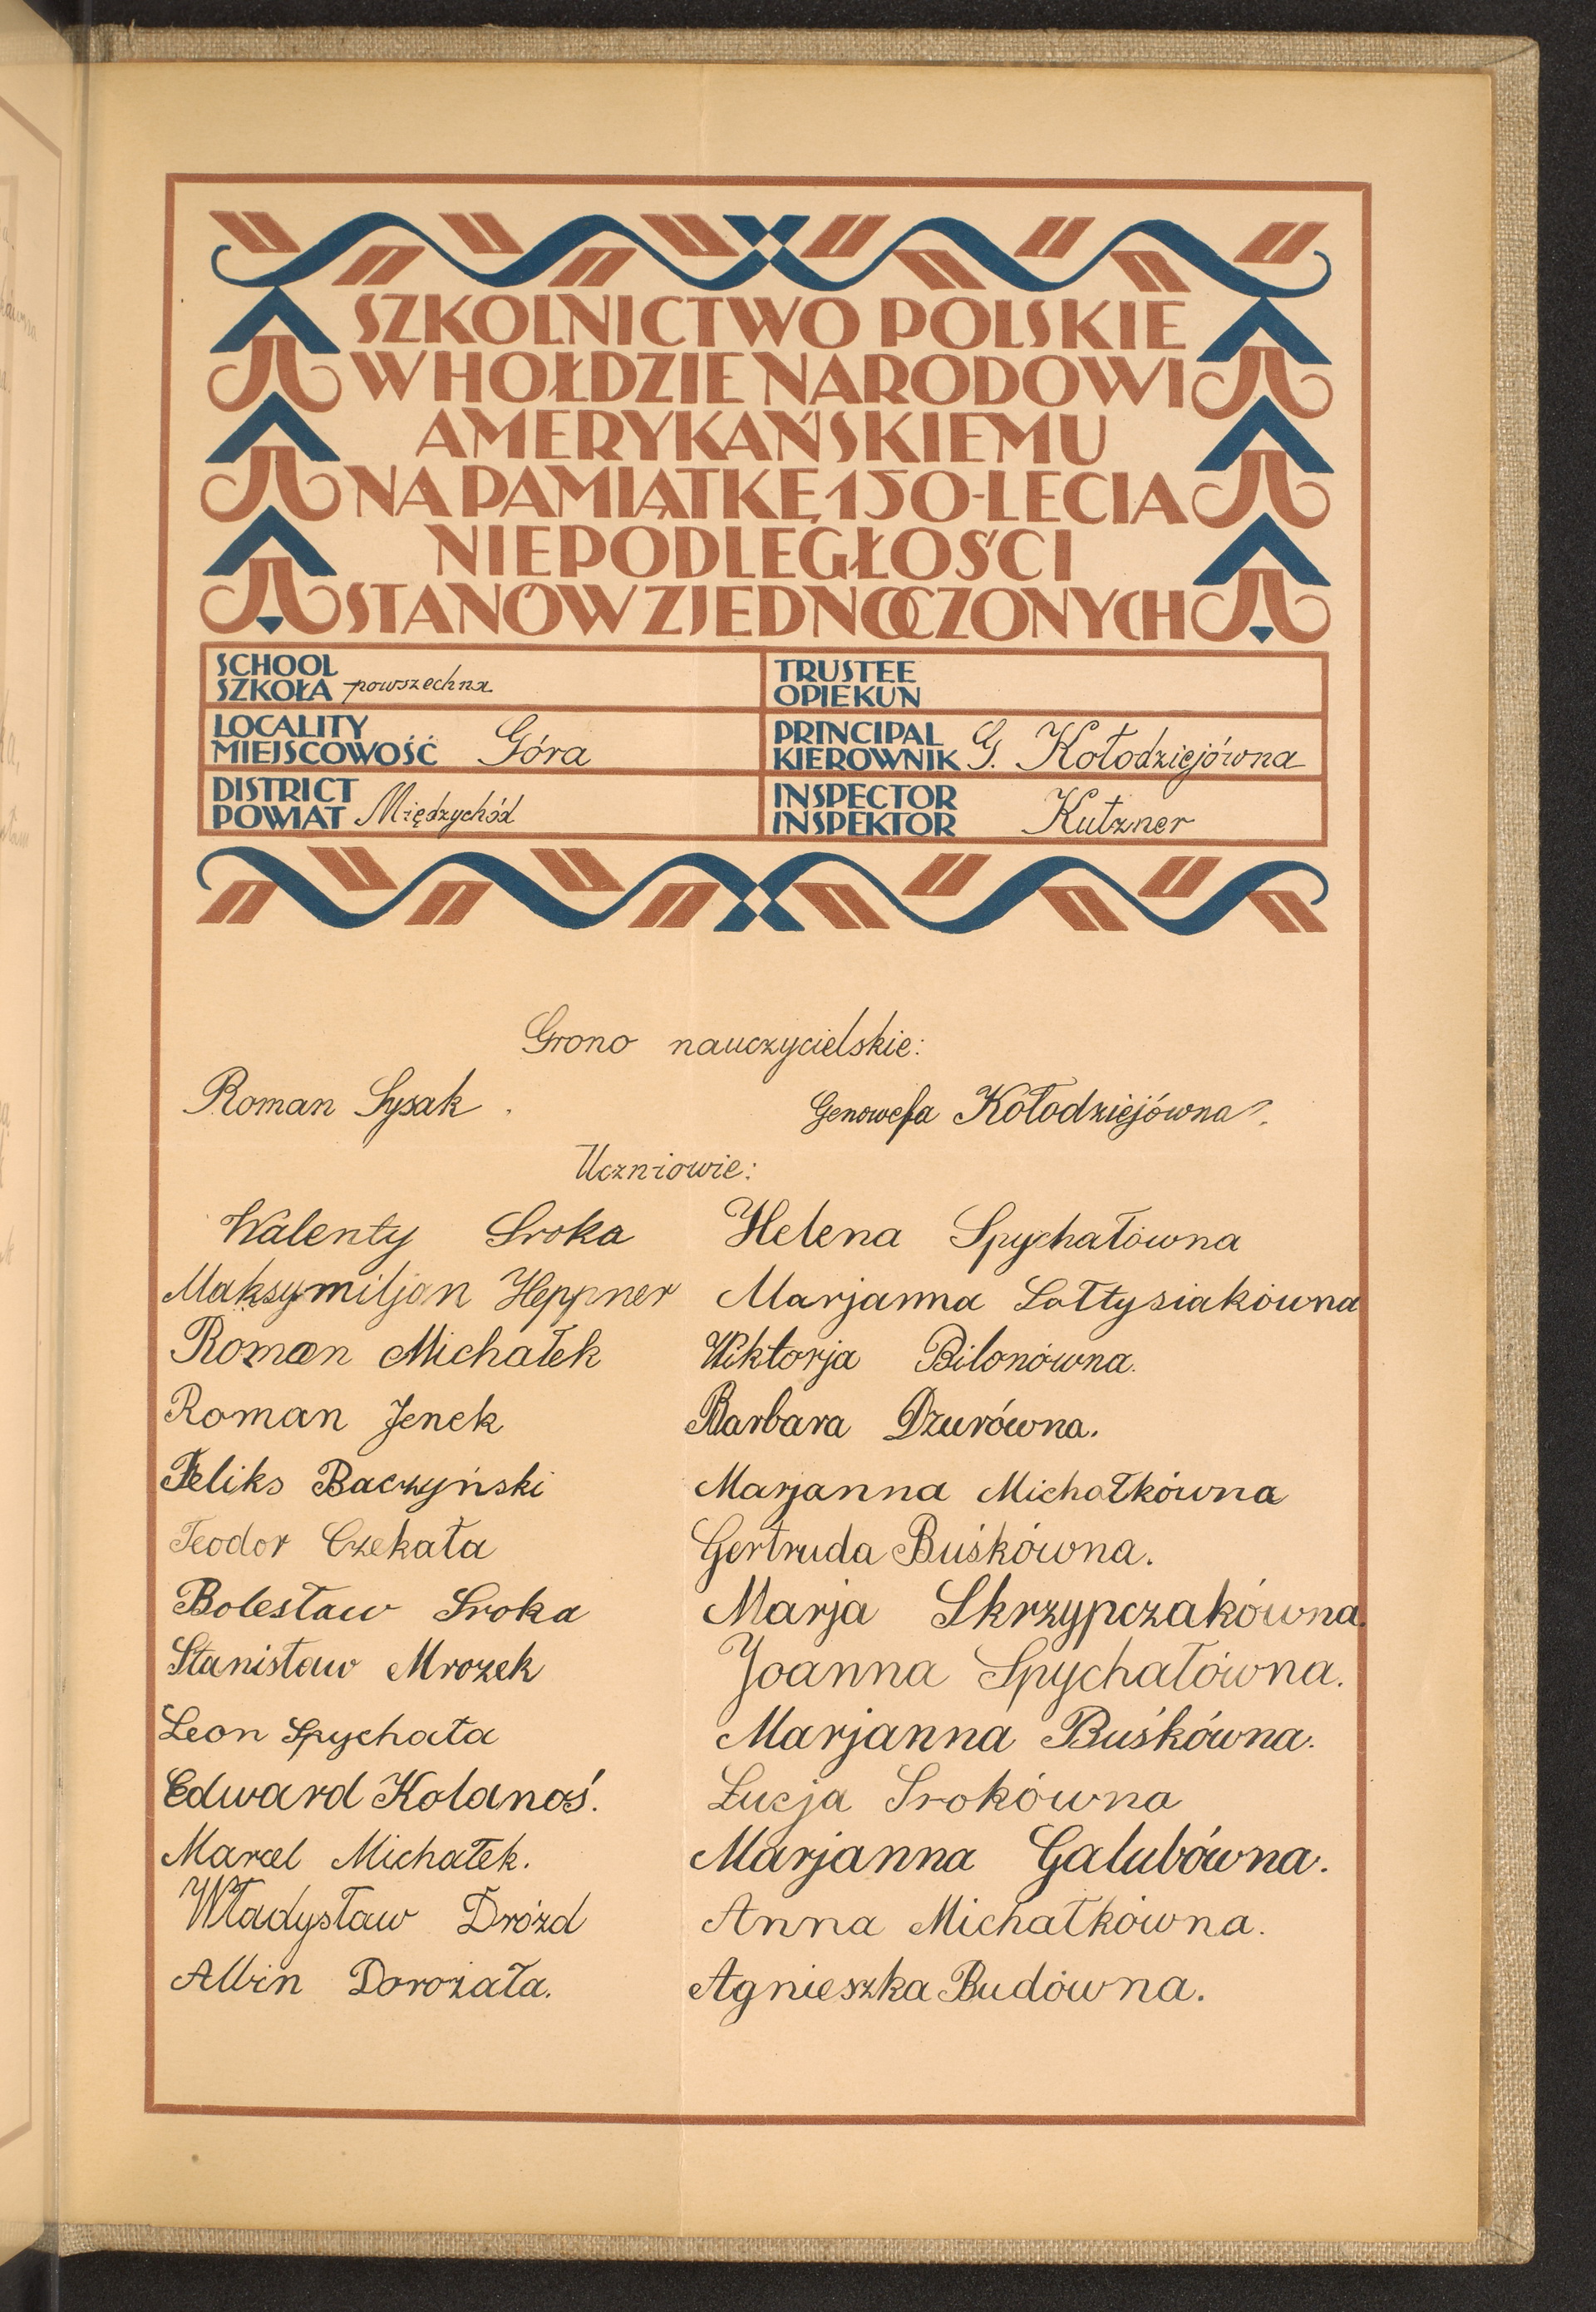 SZKOLNICTWO POLSKIE
W HOŁDZIE NARODOWI
AMERYKAŃSKIEMU
NA PAMIĄTKĘ 150-LECIA
NIEPODLEGŁOŚCI
STANÓW ZJEDNOCZONYCH
SCHOOL
SZKOŁA powszechna
TRUSTEE
OPIEKUN
LOCALITY
MIEJSCOWOŚĆ Góra
PRINCIPAL
KIEROWNIK G. Kołodziejówna
DISTRICT
POWIAT Międzychód
INSPECTOR
INSPEKTOR Kutzner
Grono nauczycielskie:
Roman Sysak. Genowefa Kołodziejówna.
Uczniowie:
Walenty Sroka Helena Spychałówna
Maksymiljan Heppner Marjanna Sołtysiakówna
Roman Michałek Wiktorja Bilonówna.
Roman Jenek Barbara Dzurówna.
Feliks Baczyński Marjanna Michałkówna
Teodor Czekała Gertruda Buśkówna.
Bolesław Sroka Marja Skrzypczakówna.
Stanisław Mrozek Joanna Spychałówna.
Leon Spychała Marjanna Buśkówna.
Edward Kolanoś. Łucja Srokówna
Marcel Michałek. Marjanna Galubówna.
Władysław Drózd Anna Michałkówna.
Albin Dorożała. Agnieszka Budówna.